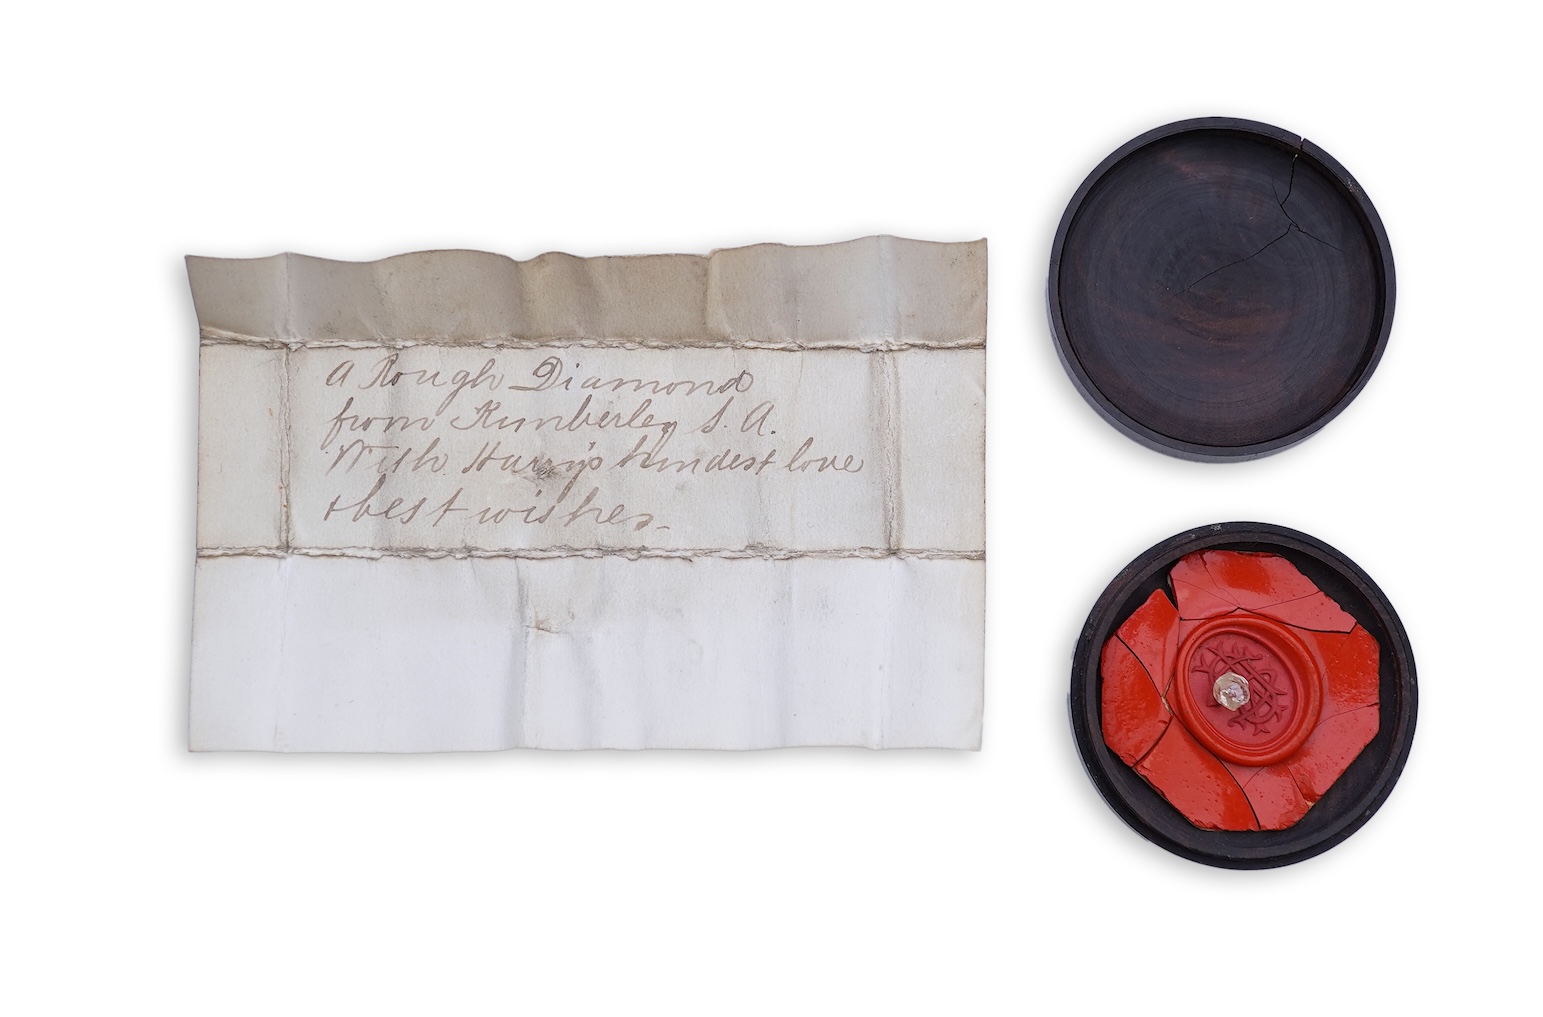 A Rough Diamond
from Kimberley S. A.
With Harry's kindest love
& best wishes.